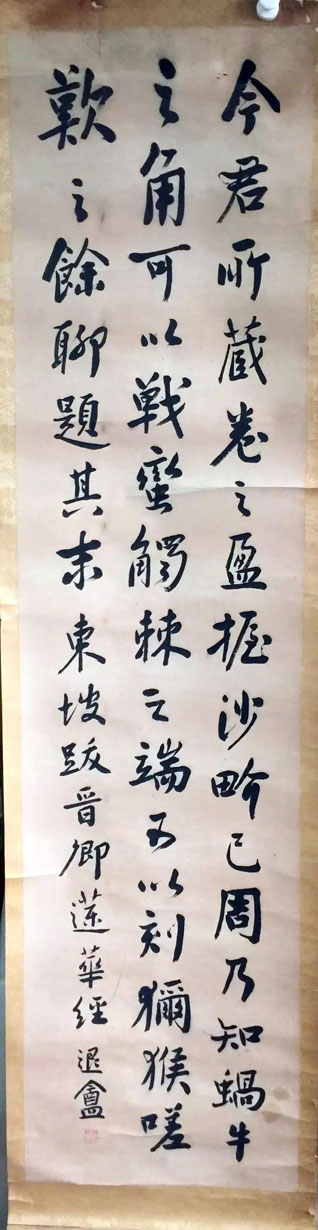 今君所藏卷之盈握沙界已周乃知蝸牛
之角可以戰蠻觸棘之端可以刻獼猴嗟
歎之餘聊題其末東坡跋晉卿蓮華經退盦